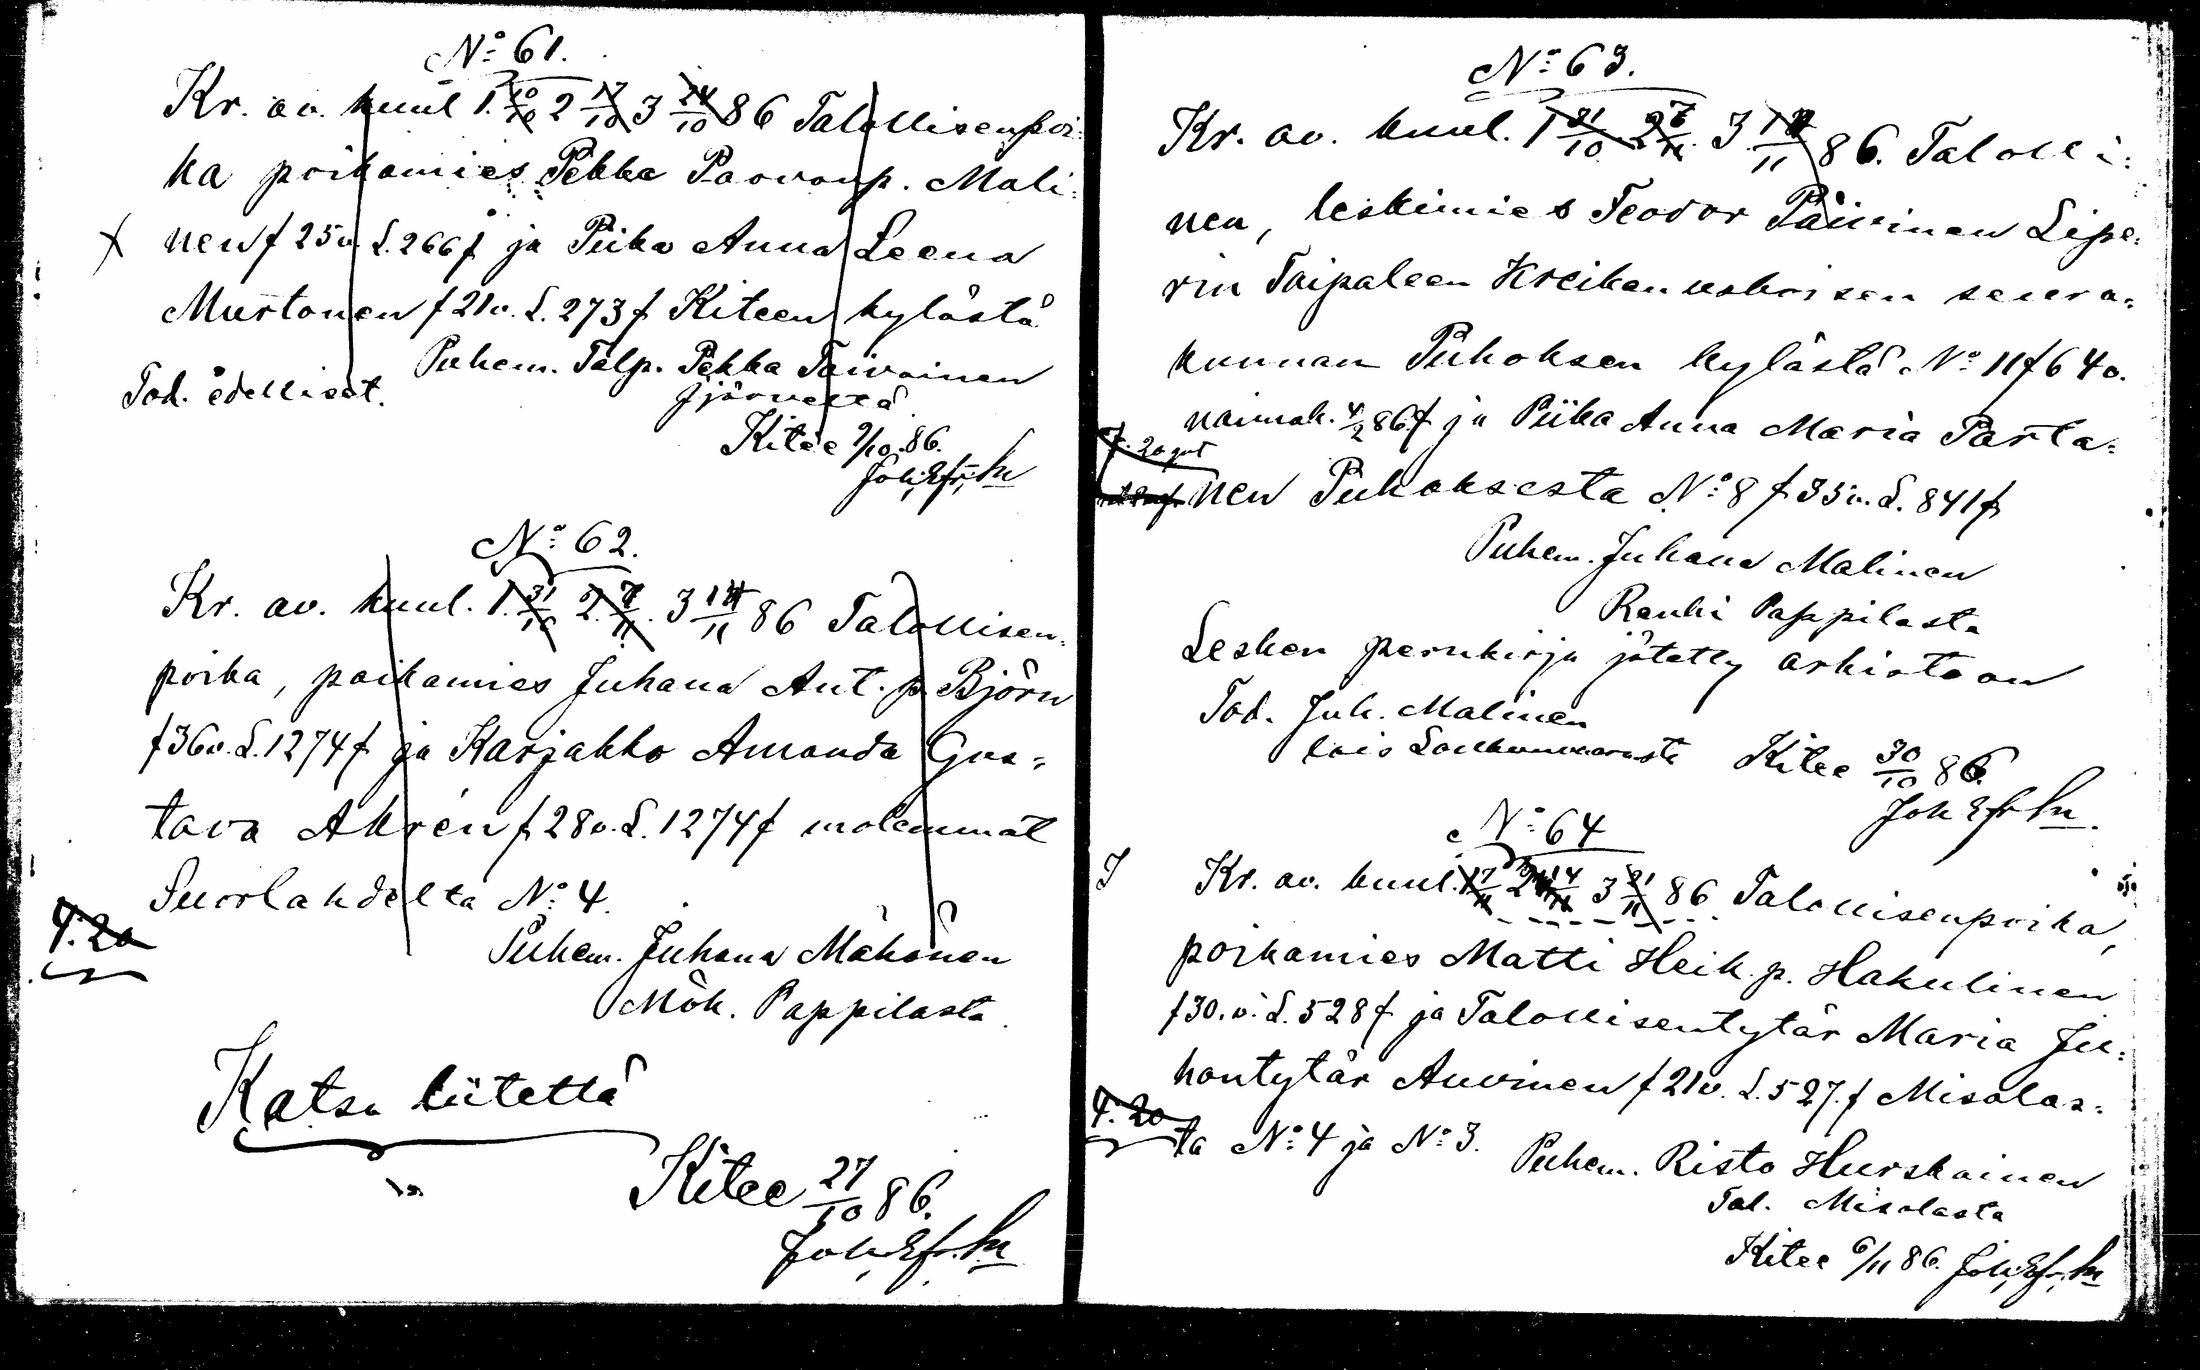 No: 61.
Kr. av. kuul 1. 10/10 2 17/10 3 24/10 86 Talollisenpoi:
ka poikamies Pekka Paavonp. Mali:
x nen f 25v. S. 266 f ja Piika Anna Leena
Murtonen f 21v. S. 273 f Kiteen kylästä
Puhem. Talp. Pekka Toivainen
Tod. edelliset.
Jjärveltä
Kitee 9/10 86.
Joh. Efr.
No: 62.
Kr. av. kuul. 1. 31/10 2. 7/11. 3 14/11 86 Talollisen:
poika, poikamies Juhana Ant. p. Björn
f 36v. S. 1274 f ja Karjakko Amanda Gus:
tava Ahrén f 28v. S. 1274 f molemmat
Suorlahdelta No: 4.
4: 20
Puhem. Juhana Mähönen
Mök. Pappilasta.
Katso liitettä
Kitee 27/10 86.
Joh. Efr.
No: 63.
Kr. av. kuul. 1 31/10 2 7/11. 3. 14/11 86. Talolli:
nen, leskimies Teodor Päivinen Lipe:
rin Taipaleen Kreikanuskoisen seura:
kunnan Puhoksen kylästä No 11 f 64v.
naimah. 4/2 86 f ja Piika Anna Maria Parta:
nen Puhoksesta No: 8 f 35v. S. 841 f
Puhem. Juhana Malinen
Renki Pappilasta
Lesken perukirja jätetty arkistoon
Tod. Juh. Malinen
lois
Kitee 30/10 86.
Joh Efr
No: 64
Kr. av. kuul. 1 7/11 2 14/11 3 21/11 86 Talollisenpoika,
poikamies Matti Heik. p. Hakulinen
f 30. v. S. 528 f ja Talollisentytär Maria Ju:
hontytär Auvinen f 21v. S. 527. f Misolas:
4: 20
ta No: 4 ja No: 3.
Puhem. Risto Hurskainen
Tal. Misolasta
Kitee 6/11 86. Joh. Efr.